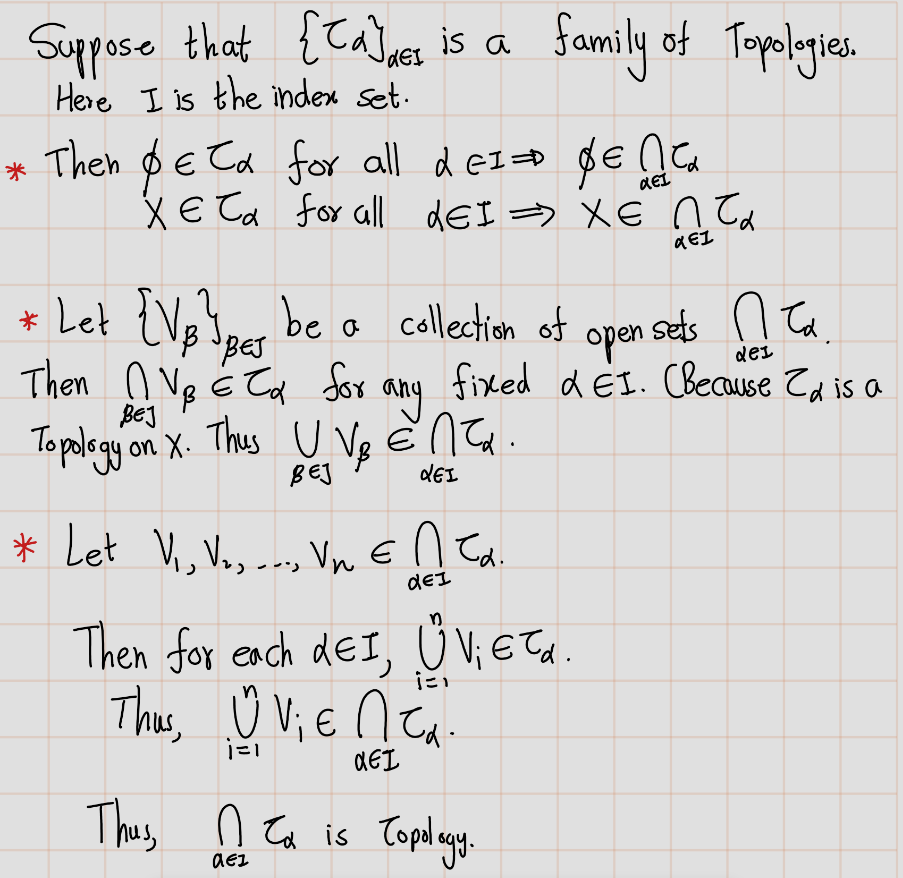 Suppose that {τα}α∈I is a family of Topologies.
Here I is the index set.
* Then ϕ ∈ τα for all α ∈ I ⇒ ϕ ∈ ⋂α∈I τα
X ∈ τα for all α∈I ⇒ X ∈ ⋂α∈I τα
* Let {Vβ}β∈J be a collection of open sets ⋂α∈I τα.
Then ⋂β∈J Vβ ∈ τα for any fixed α ∈ I. (Because τα is a
Topology on X. Thus ⋃β∈J Vβ ∈ ⋂α∈I τα.
* Let V₁, V₂, ..., Vn ∈ ⋂α∈I τα.
Then for each α∈I, ⋃ⁿi=1 Vi ∈ τα.
Thus, ⋃ⁿi=1 Vi ∈ ⋂α∈I τα.
Thus, ⋂α∈I τα is Topology.